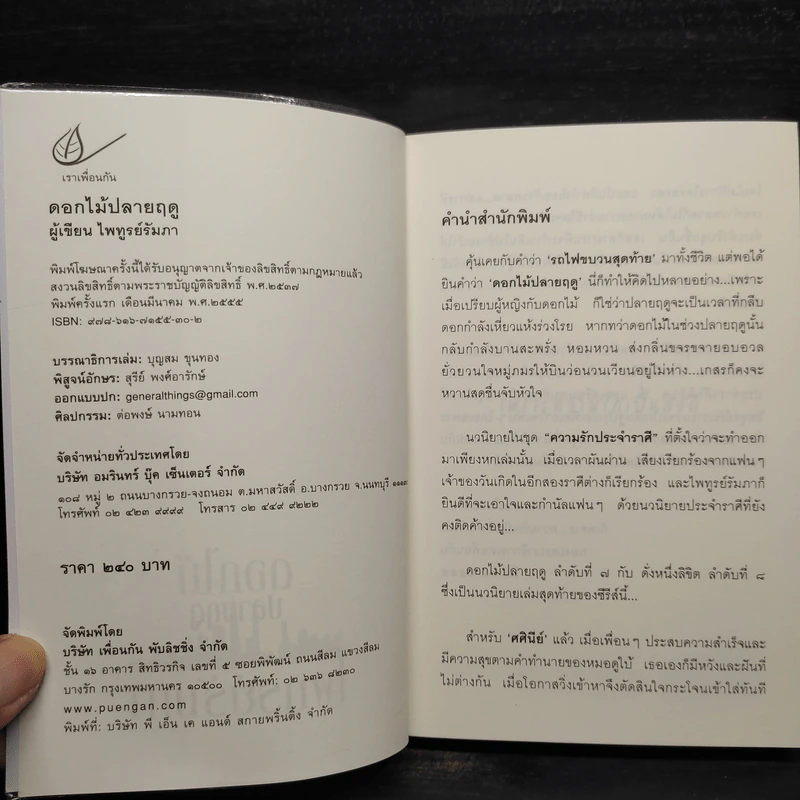 เราเพื่อนกัน
ดอกไม้ปลายฤดู
ผู้เขียน ไพทูรย์รัมภา
พิมพ์โฆษณาครั้งนี้ได้รับอนุญาตจากเจ้าของลิขสิทธิ์ตามกฎหมายแล้ว
สงวนลิขสิทธิ์ตามพระราชบัญญัติลิขสิทธิ์ พ.ศ.๒๕๓๗
พิมพ์ครั้งแรก เดือนมีนาคม พ.ศ.๒๕๕๕
ISBN: ๙๗๘-๖๑๖-๗๑๕๕-๓๐-๒
บรรณาธิการเล่ม: บุญสม ขุนทอง
พิสูจน์อักษร: สุรีย์ พงศ์อารักษ์
ออกแบบปก: generalthings@gmail.com
ศิลปกรรม: ต่อพงษ์ นามทอน
จัดจำหน่ายทั่วประเทศโดย
บริษัท อมรินทร์ บุ๊ค เซ็นเตอร์ จำกัด
๑๐๘ หมู่ ๒ ถนนบางกรวย-จงถนอม ต.มหาสวัสดิ์ อ.บางกรวย จ.นนทบุรี
โทรศัพท์ ๐๒ ๔๒๓ ๙๙๙๙ โทรสาร ๐๒ ๔๔๙ ๙๒๒๒
ราคา ๒๔๐ บาท
จัดพิมพ์โดย
บริษัท เพื่อนกัน พับลิชชิ่ง จำกัด
ชั้น ๑๖ อาคาร สิทธิวรกิจ เลขที่ ๕ ซอยพิพัฒน์ ถนนสีลม แขวงสีลม
บางรัก กรุงเทพมหานคร ๑๐๕๐๐ โทรศัพท์: ๐๒ ๖๓๖ ๘๒๓๐
www.puengan.com
พิมพ์ที่: บริษัท พี เอ็น เค แอนด์ สกายพริ้นติ้ง จำกัด
คำนำสำนักพิมพ์
คุ้นเคยกับคำว่า 'รถไฟขบวนสุดท้าย' มาทั้งชีวิต แต่พอได้
ยินคำว่า 'ดอกไม้ปลายฤดู' นี่ก็ทำให้คิดไปหลายอย่าง...เพราะ
เมื่อเปรียบผู้หญิงกับดอกไม้ ก็ใช่ว่าปลายฤดูจะเป็นเวลาที่กลีบ
ดอกกำลังเหี่ยวแห้งร่วงโรย หากทว่าดอกไม้ในช่วงปลายฤดูนั้น
กลับกำลังบานสะพรั่ง หอมหวน ส่งกลิ่นขจรขจายอบอวล
ยั่วยวนใจหมู่ภมรให้บินว่อนวนเวียนอยู่ไม่ห่าง...เกสรก็คงจะ
หวานสดชื่นจับหัวใจ
นวนิยายในชุด "ความรักประจำราศี" ที่ตั้งใจว่าจะทำออก
มาเพียงหกเล่มนั้น เมื่อเวลาผันผ่าน เสียงเรียกร้องจากแฟนๆ
เจ้าของวันเกิดในอีกสองราศีต่างก็เรียกร้อง และไพทูรย์รัมภาก็
ยินดีที่จะเอาใจและกำนัลแฟนๆ ด้วยนวนิยายประจำราศีที่ยัง
คงติดค้างอยู่...
ดอกไม้ปลายฤดู ลำดับที่ ๗ กับ ดั่งหนึ่งลิขิต ลำดับที่ ๘
ซึ่งเป็นนวนิยายเล่มสุดท้ายของซีรีส์นี้...
สำหรับ 'ศศินีย์' แล้ว เมื่อเพื่อนๆ ประสบความสำเร็จและ
มีความสุขตามคำทำนายของหมอดูใบ้ เธอเองก็มีหวังและฝันที่
ไม่ต่างกัน เมื่อโอกาสวิ่งเข้าหาจึงตัดสินใจกระโจนเข้าใส่ทันที